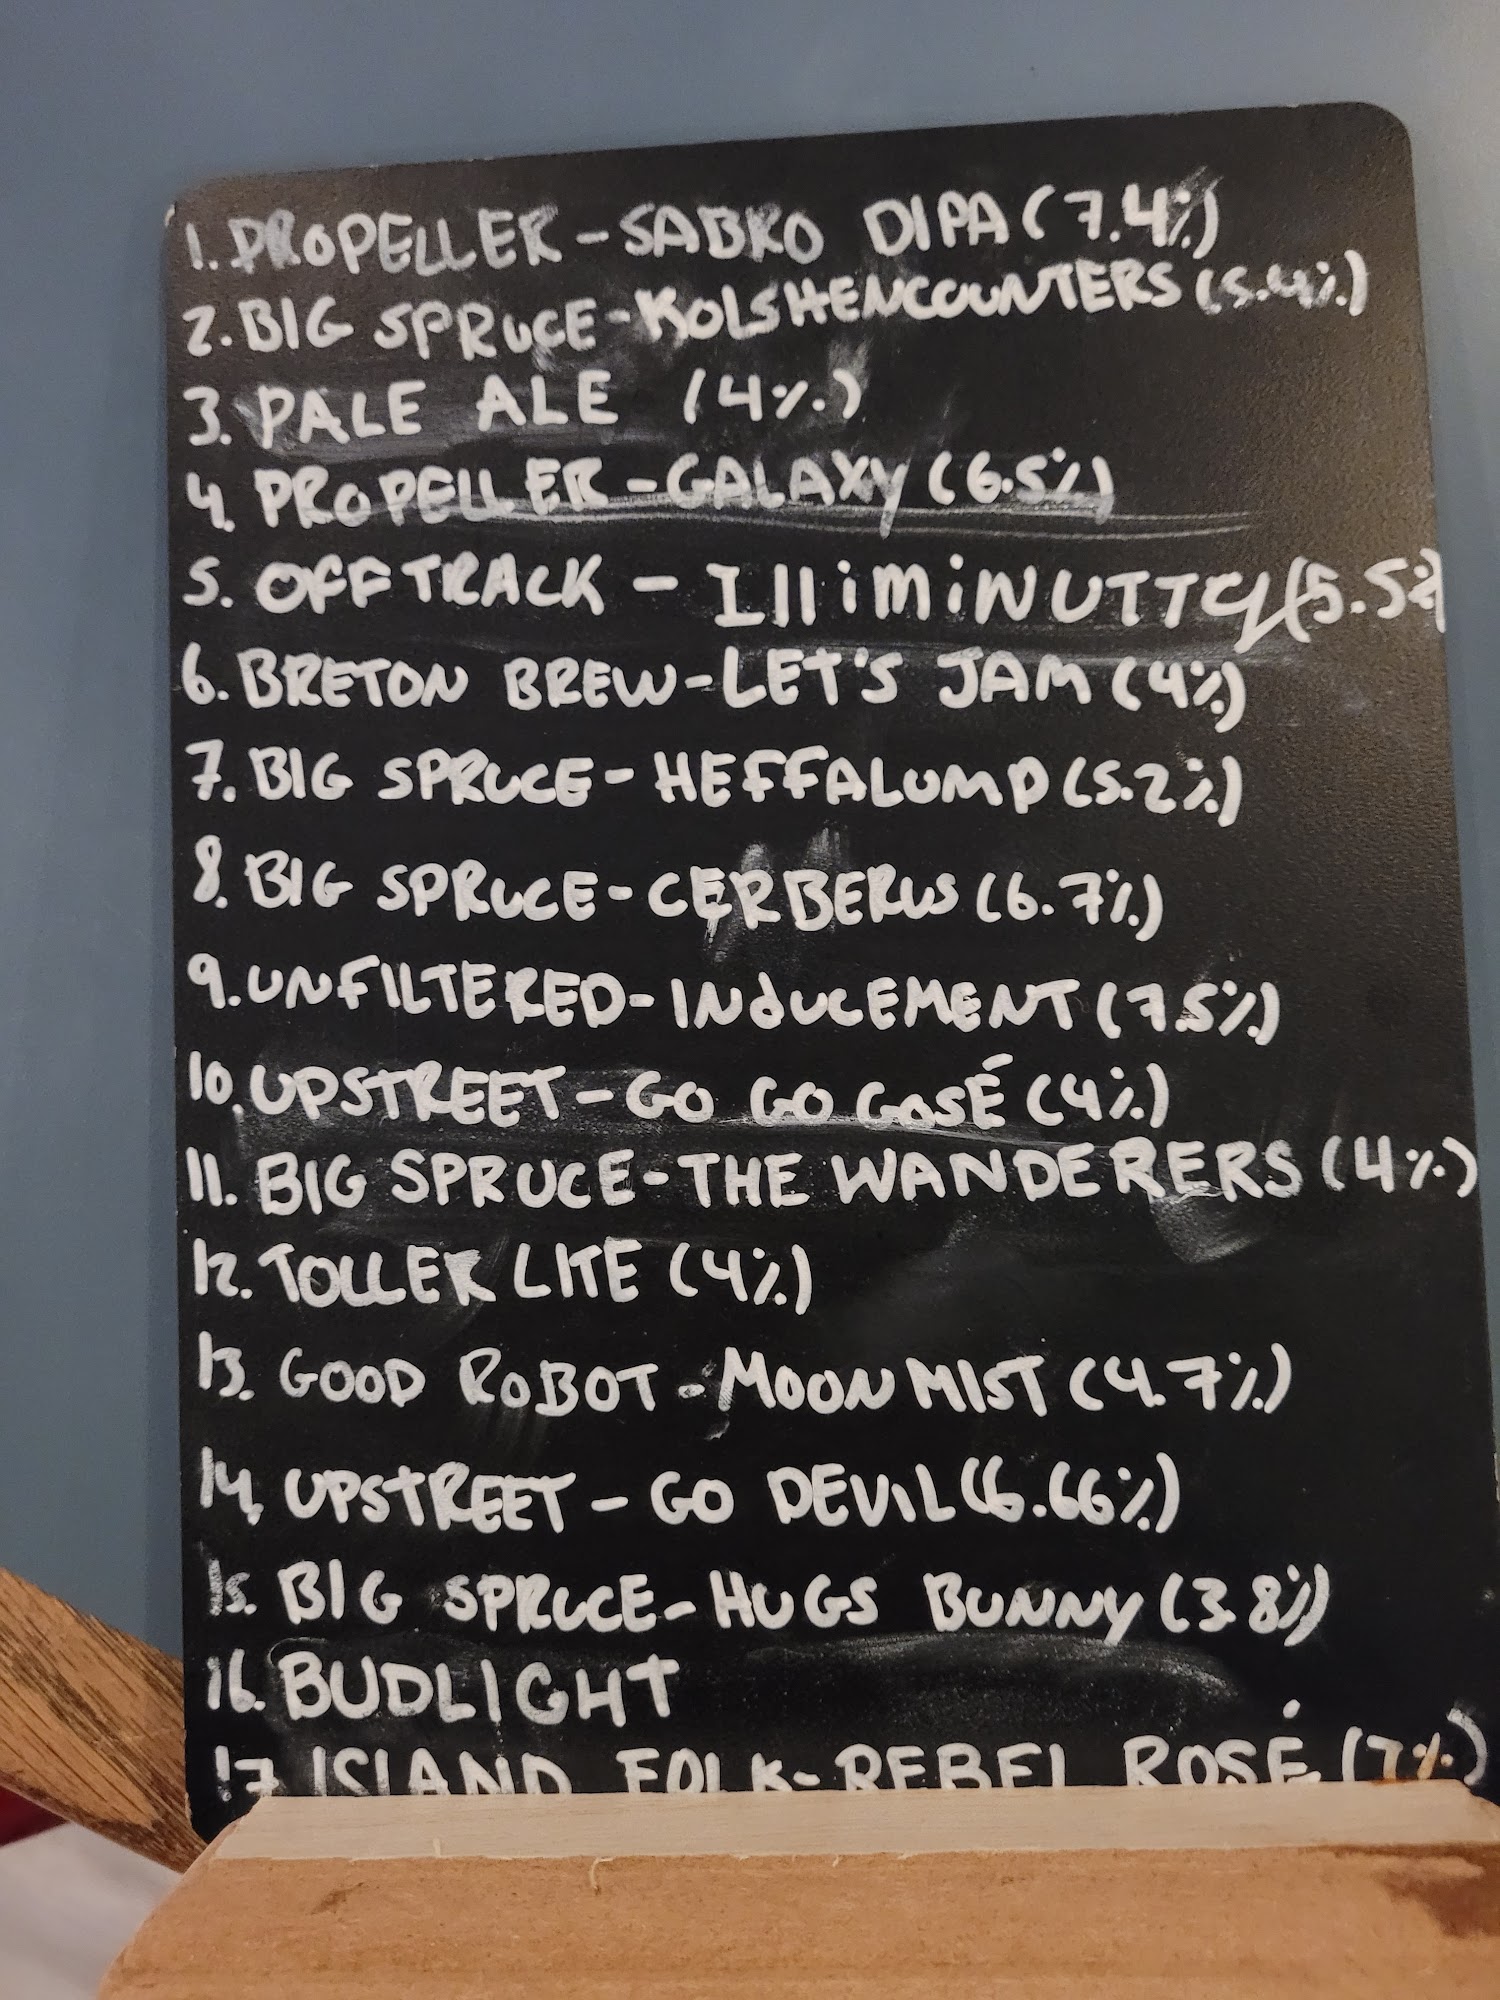 1. PROPELLER - SABRO DIPA (7.4%)
2. BIG SPRUCE - KOLSHENCOUNTERS (5.4%)
3. PALE ALE (4%)
4. PROPELLER - GALAXY (6.5%)
5. OFFTRACK - IlliMiNUTTY (5.5%)
6. BRETON BREW - LET'S JAM (4%)
7. BIG SPRUCE - HEFFALUMP (5.2%)
8. BIG SPRUCE - CERBERUS (6.7%)
9. UNFILTERED - INDUCEMENT (7.5%)
10. UPSTREET - GO GO GOSÉ (4%)
11. BIG SPRUCE - THE WANDERERS (4%)
12. TOLLER LITE (4%)
13. GOOD ROBOT - MOON MIST (4.7%)
14. UPSTREET - GO DEVIL (6.66%)
15. BIG SPRUCE - HUGS BUNNY (3.8%)
16. BUDLIGHT
17 ISLAND FOLK - REBEL ROSÉ (7%)